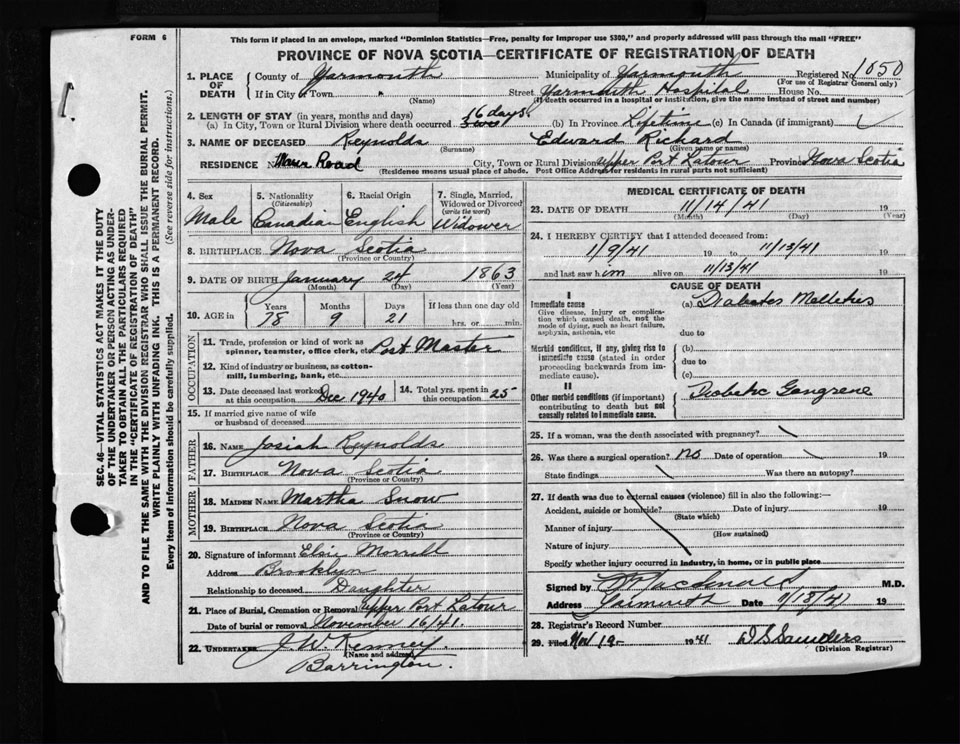 FORM 6
This form if placed in an envelope, marked "Dominion Statistics—Free, penalty for improper use $300," and properly addressed will pass through the mail "FREE"
PROVINCE OF NOVA SCOTIA—CERTIFICATE OF REGISTRATION OF DEATH
SEC. 46—VITAL STATISTICS ACT MAKES IT THE DUTY
OF THE UNDERTAKER OR PERSON ACTING AS UNDER-
TAKER TO OBTAIN ALL THE PARTICULARS REQUIRED
IN THE "CERTIFICATE OF REGISTRATION OF DEATH"
AND TO FILE THE SAME WITH THE DIVISION REGISTRAR WHO SHALL ISSUE THE BURIAL PERMIT.
WRITE PLAINLY WITH UNFADING INK. THIS IS A PERMANENT RECORD.
Every item of information should be carefully supplied. (See reverse side for instructions.)
1. PLACE OF DEATH
County of Yarmouth Municipality of Yarmouth Registered No. 1050
(For use of Registrar General only)
If in City or Town (Name) Street Yarmouth Hospital House No.
(If death occurred in a hospital or institution, give the name instead of street and number)
2. LENGTH OF STAY (in years, months and days)
(a) In City, Town or Rural Division where death occurred 16 days (b) In Province Lifetime (c) In Canada (if immigrant)
3. NAME OF DECEASED Reynolds Edward Richard
(Surname) (Given name or names)
RESIDENCE No. Main Road City, Town or Rural Division Upper Port Latour Province Nova Scotia
(Residence means usual place of abode. Post Office Address for residents in rural parts not sufficient)
4. Sex
Male
5. Nationality
(Citizenship)
Canadian
6. Racial Origin
English
7. Single, Married,
Widowed or Divorced
(write the word)
Widower
8. BIRTHPLACE Nova Scotia
(Province or Country)
9. DATE OF BIRTH January 24 1863
(Month) (Day) (Year)
10. AGE in
Years Months Days If less than one day old
78 9 21 hrs. or min.
OCCUPATION
11. Trade, profession or kind of work as
spinner, teamster, office clerk, etc. Post Master
12. Kind of industry or business, as cotton-
mill, lumbering, bank, etc.
13. Date deceased last worked
at this occupation Dec 1940
14. Total yrs. spent in
this occupation 25
15. If married give name of wife
or husband of deceased
FATHER
16. NAME Josiah Reynolds
17. BIRTHPLACE Nova Scotia
(Province or Country)
MOTHER
18. MAIDEN NAME Martha Snow
19. BIRTHPLACE Nova Scotia
(Province or Country)
20. Signature of informant Elsie Morrill
Address Brooklyn
Relationship to deceased Daughter
21. Place of Burial, Cremation or Removal Upper Port Latour
Date of burial or removal November 16/41.
22. UNDERTAKER J. W. Kenney
(Name and address)
Barrington.
MEDICAL CERTIFICATE OF DEATH
23. DATE OF DEATH 11/14/41 19
(Month) (Day) (Year)
24. I HEREBY CERTIFY that I attended deceased from:
1/9/41 19 to 11/13/41
and last saw him alive on 11/13/41 19
CAUSE OF DEATH
I
Immediate cause
Give disease, injury or complica-
tion which caused death, not the
mode of dying, such as heart failure,
asphyxia, asthenia, etc
(a) Diabetes Mellitus
due to
Morbid conditions, if any, giving rise to
immediate cause (stated in order
proceeding backwards from im-
mediate cause).
(b)
due to
(c)
II
Other morbid conditions (if important)
contributing to death but not
causally related to immediate cause.
Diabetic Gangrene
25. If a woman, was the death associated with pregnancy?
26. Was there a surgical operation? no Date of operation 19
State findings Was there an autopsy?
27. If death was due to external causes (violence) fill in also the following:—
Accident, suicide or homicide? Date of injury 19
(State which)
Manner of injury
(How sustained)
Nature of injury
Specify whether injury occurred in industry, in home, or in public place
Signed by Macdonald M.D.
Address Yarmouth Date 11/18/41 19
28. Registrar's Record Number
29. Filed Nov 19- 1941 Saunders
(Division Registrar)